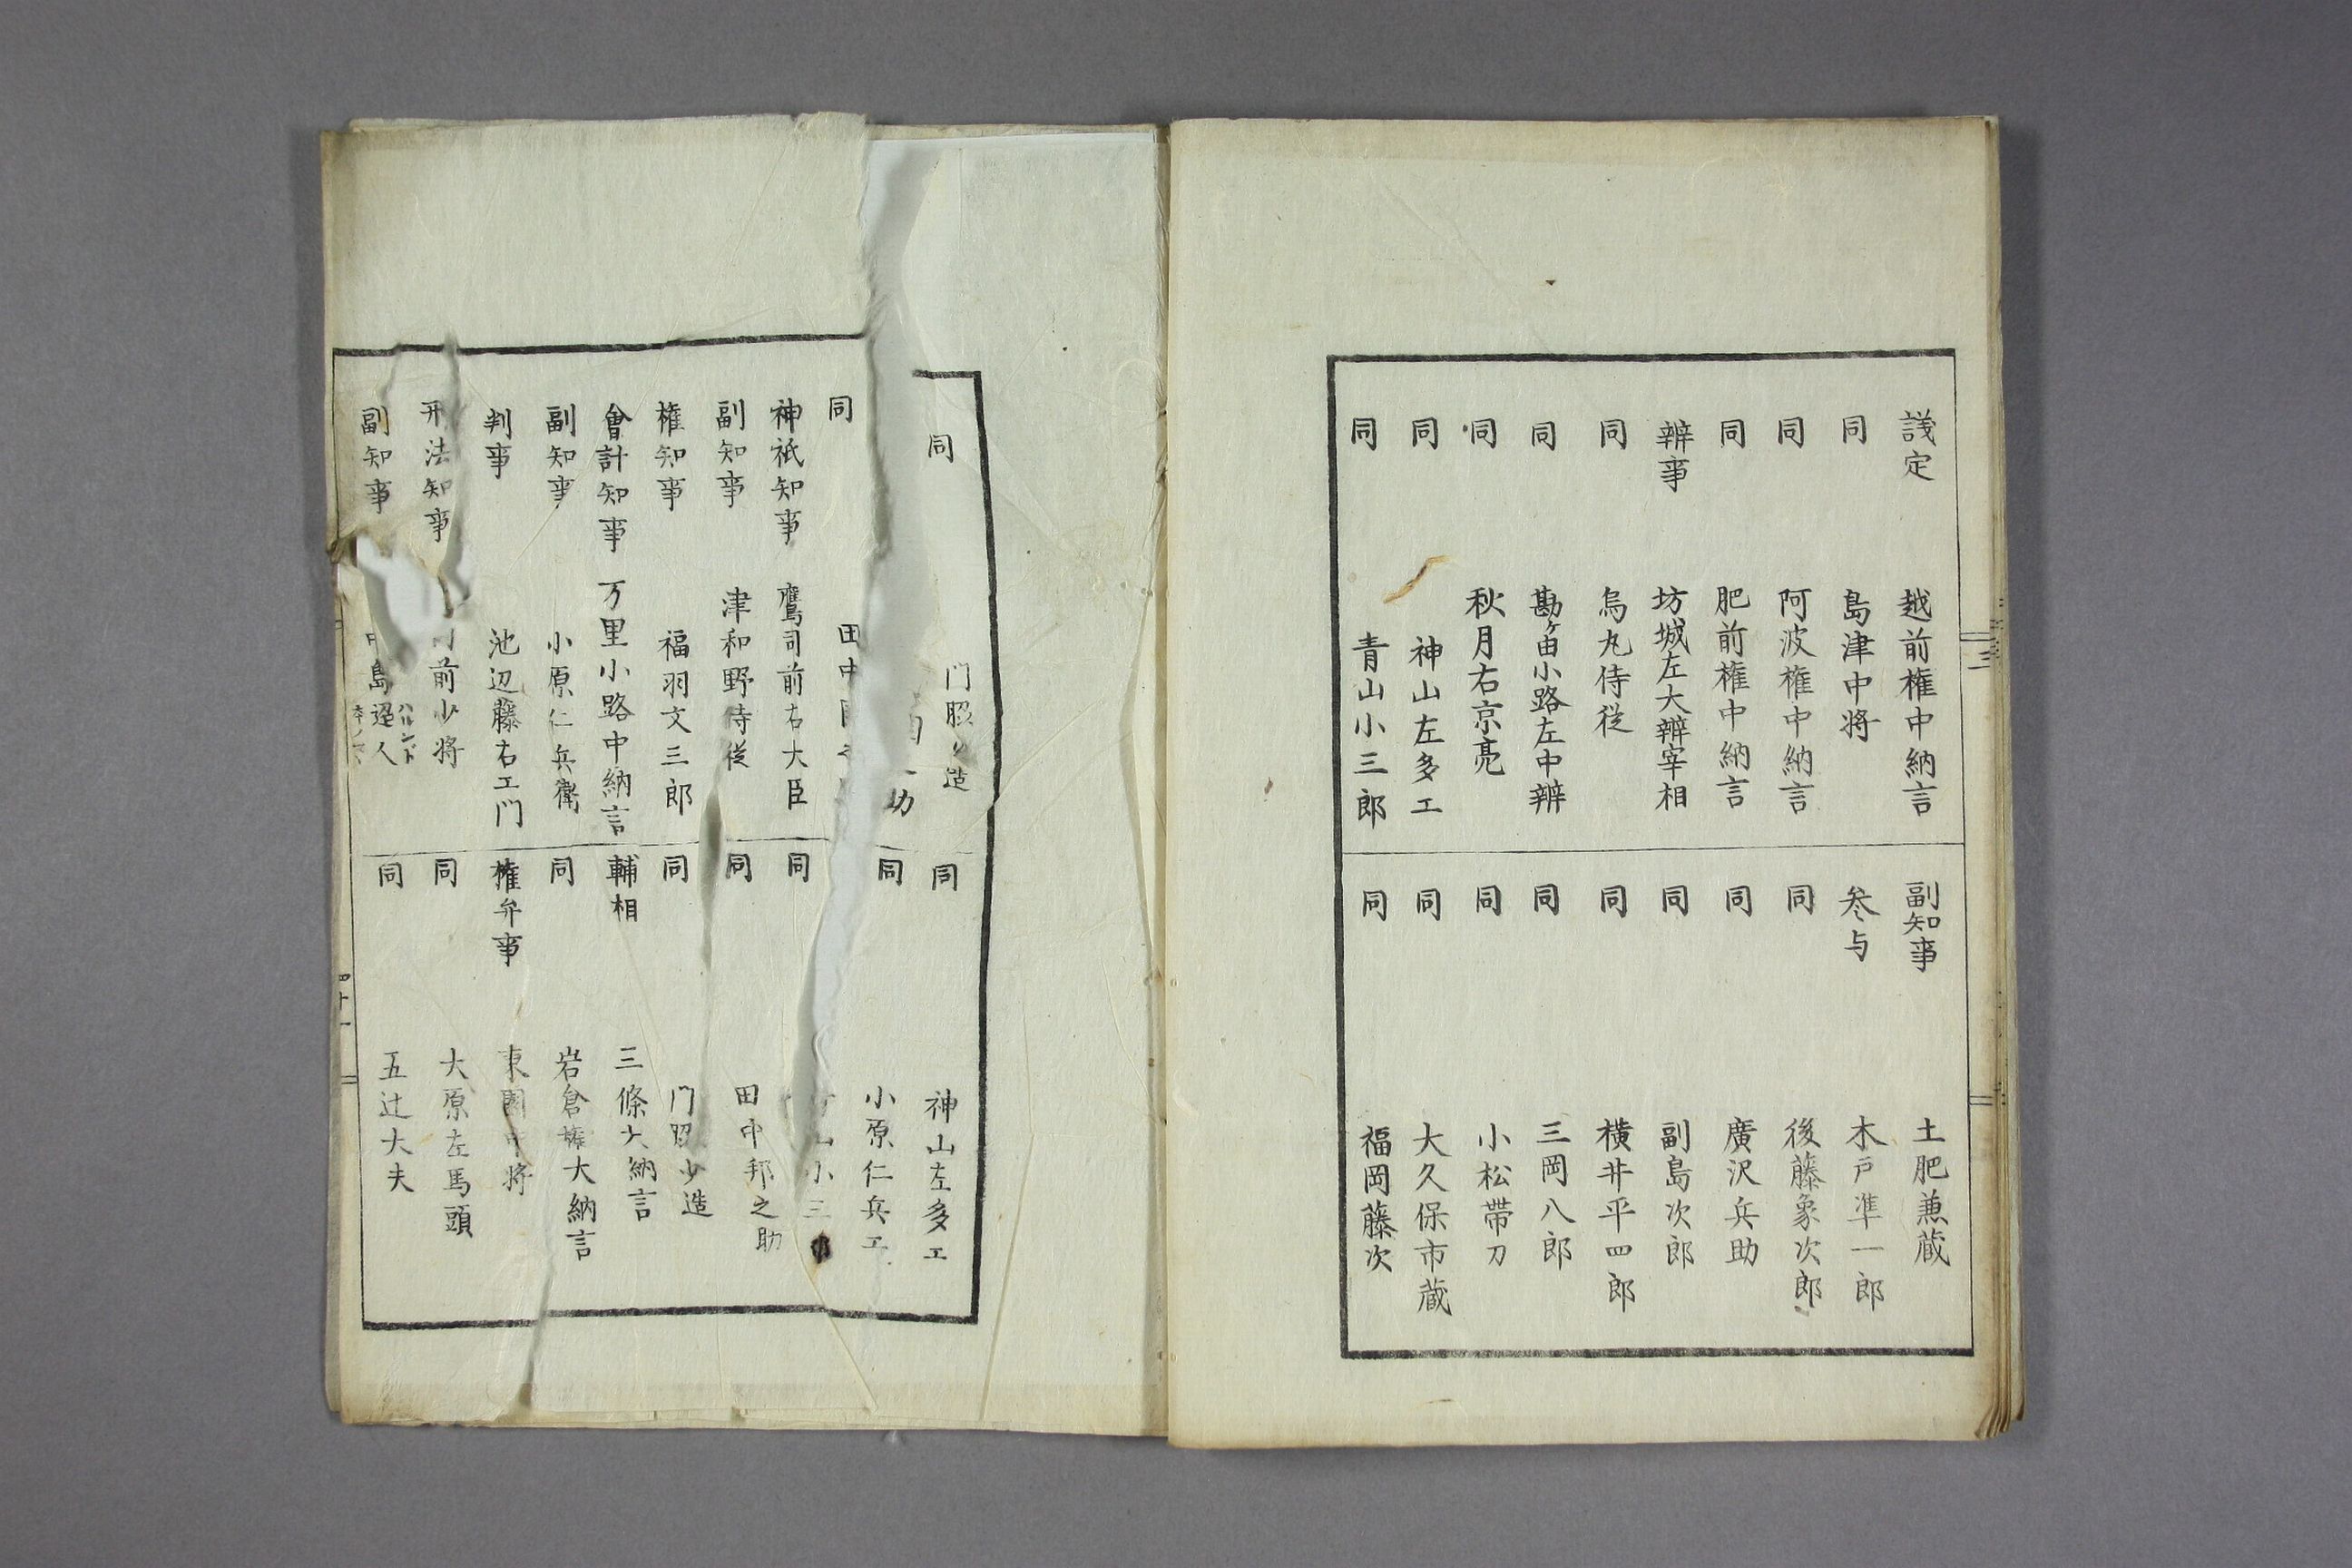 議定 越前権中納言
同 島津中将
同 阿波権中納言
同 肥前権中納言
辨事 坊城左大辨宰相
同 烏丸侍従
同 勘ケ由小路左中辨
同 秋月右京亮
同 神山左多エ
同 青山小三郎
副知事 土肥兼蔵
参与 木戸準一郎
同 後藤象次郎
同 廣沢兵助
同 副島次郎
同 横井平四郎
同 三岡八郎
同 小松帯刀
同 大久保市蔵
同 福岡藤次
同 门脇 造
助
同 田中
神祇知事 鷹司前右大臣
副知事 津和野侍従
権知事 福羽文三郎
會計知事 万里小路中納言
副知事 小原仁兵衛
判事 池辺藤右エ门
刑法知事 前少将
副知事 島 人
同 神山左多エ
同 小原仁兵エ
同 山小三郎
同 田中邦之助
同 门脇少造
輔相 三條大納言
同 岩倉権大納言
権弁事 東園中将
同 大原左馬頭
同 五辻大夫
四十一